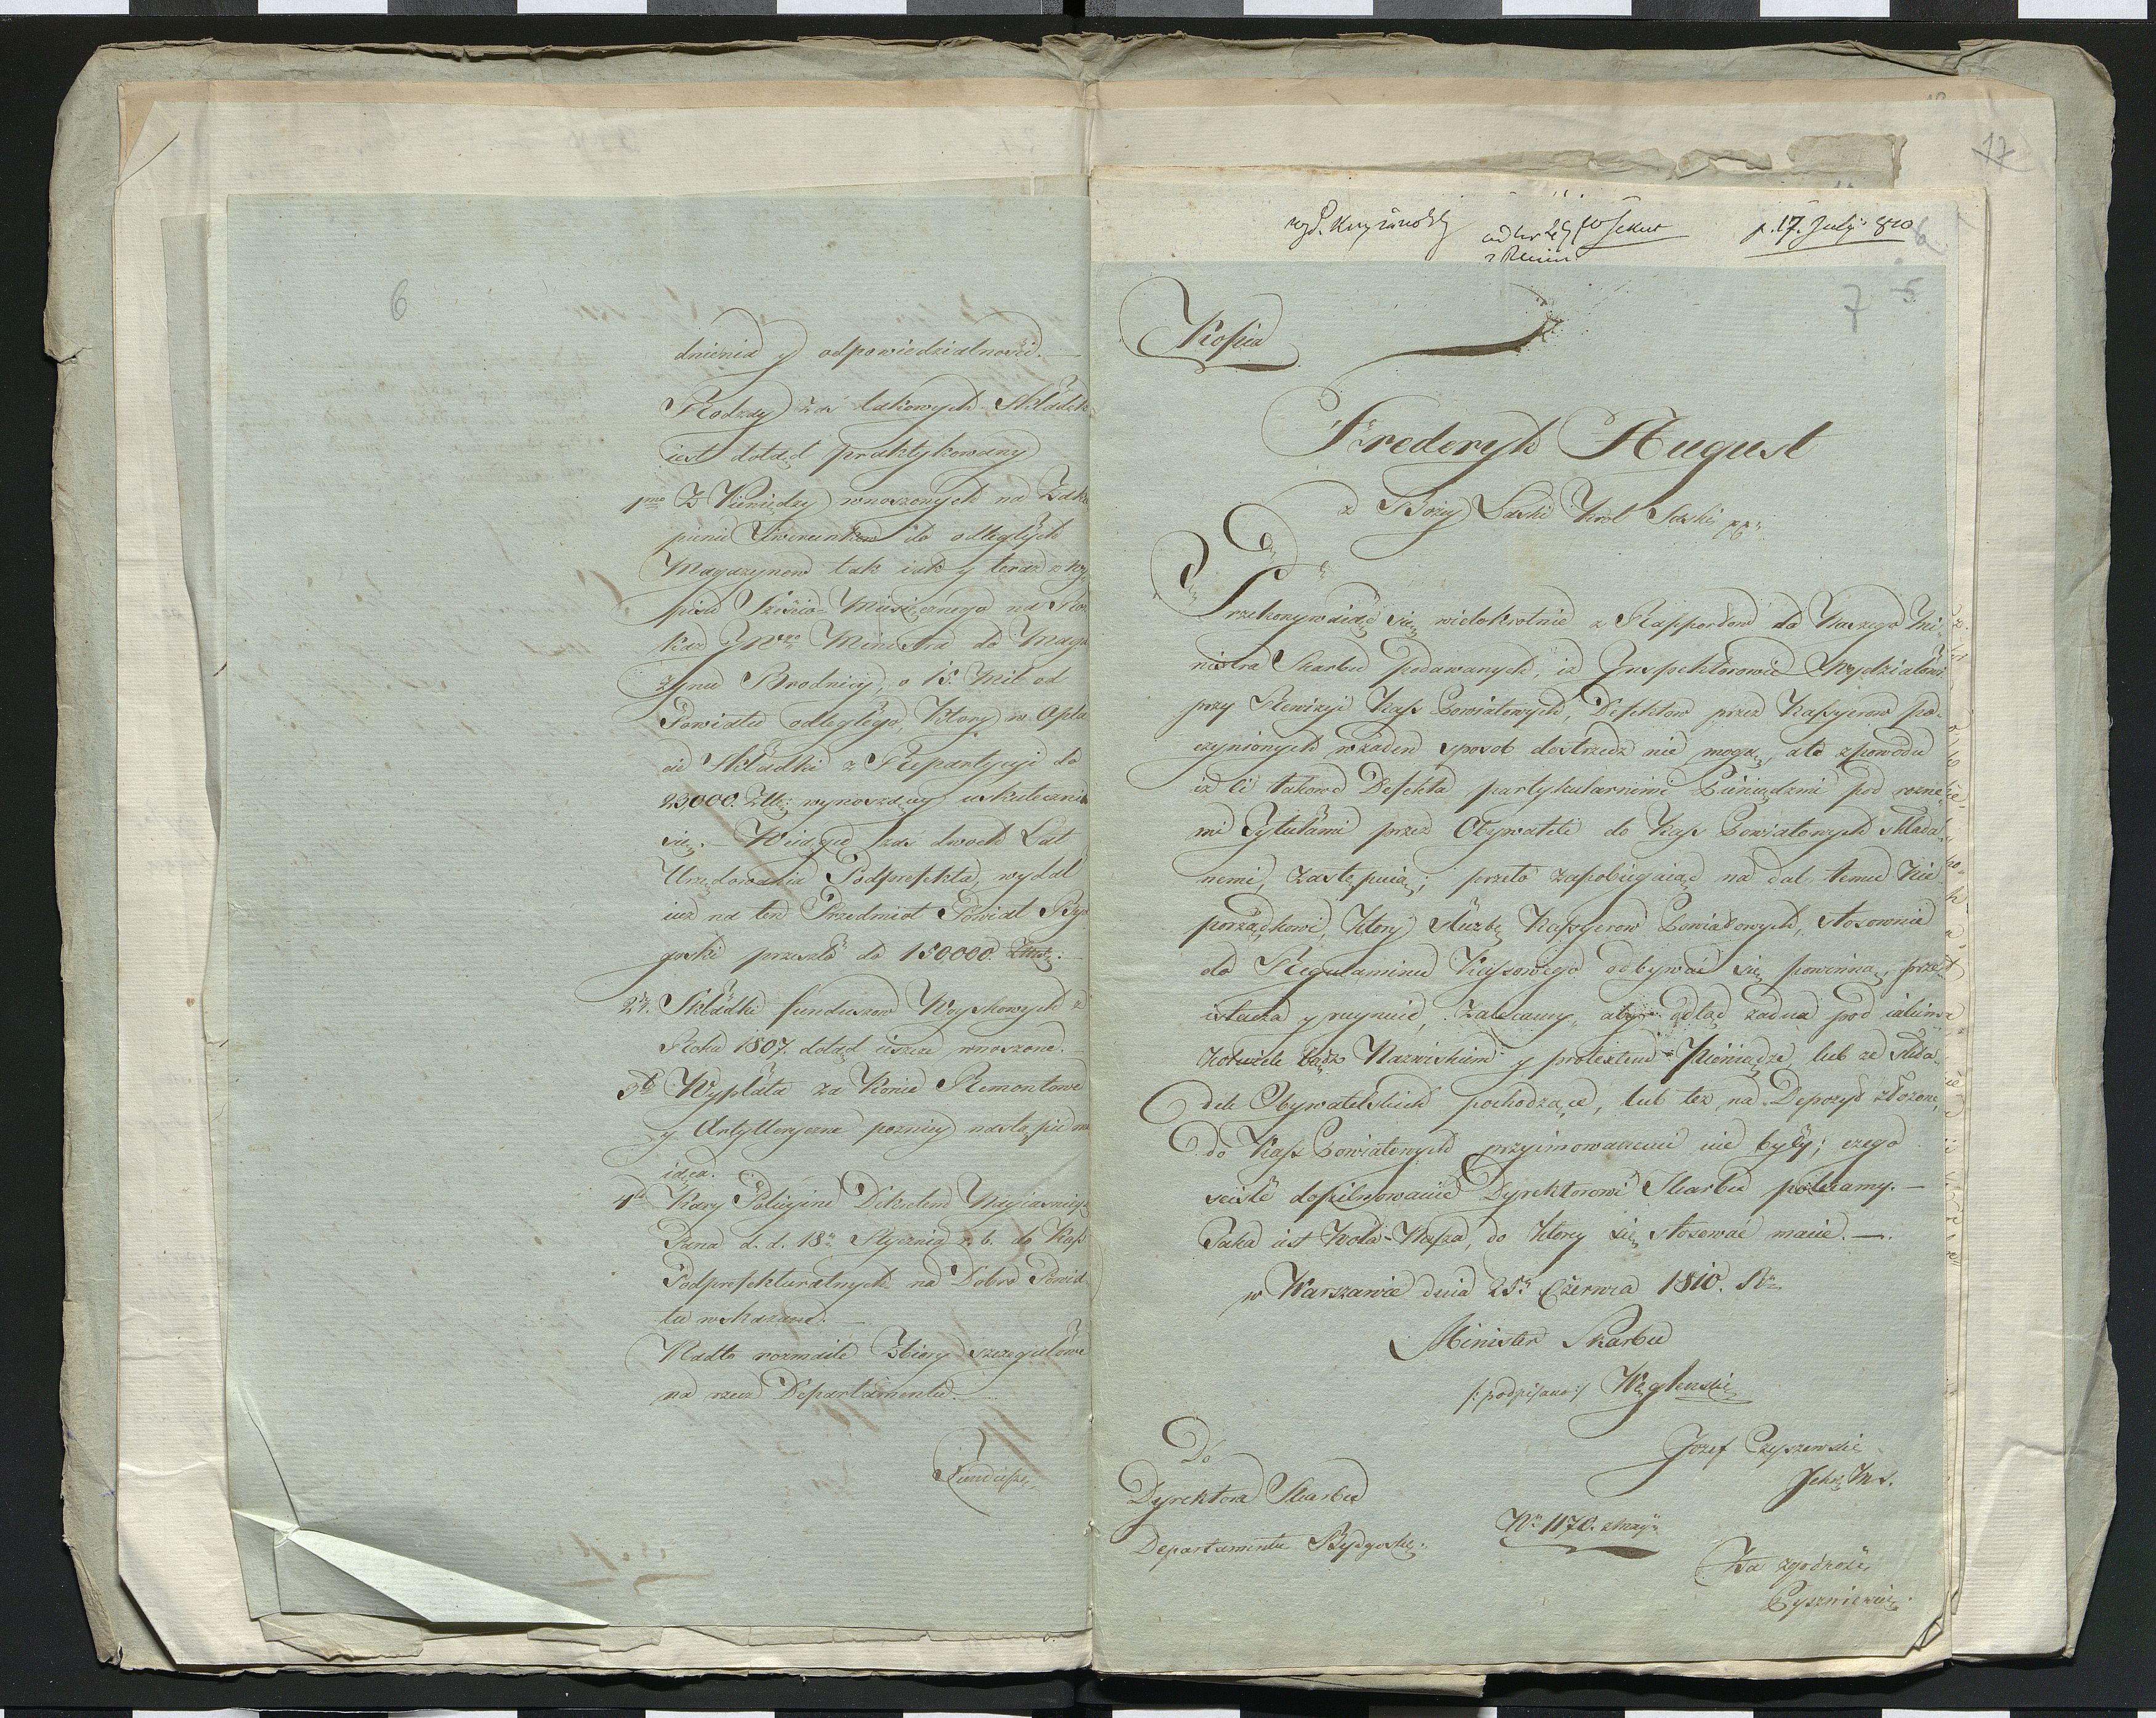 6
dnienia y odpowiedzialności. —
Rodzay za takowych Składek
iest dotąd praktykowany
1mo Z Pieniędzy wnoszonych na Zaku
pienie Wiwerunkow do odległych
Magazynow tak iak y teraz z wy
pisu Sześcio-Miesięcznego na Roz
kaz JWgo Ministra do Maga
zynu Brodnicy, o 15. Mil od
Powiatu odległego, ktory w Opła
cie Składki z Repartycyi do
23000. Złł: wynoszącey uskutecznia
się. — W ciągu zaś dwoch Lat
Urzędowania Podprefekta, wydał
iuż na ten Przedmiot Powiat Byd
goski przeszło do 150,000. Złłł: —
2do. Składki funduszow Woyskowych z
Roku 1807. dotąd ieszcze wnoszone. —
3o Wypłata za Konie Remontowe
y Artylleryczne poznicy nastąpić ma
iąca.
4o Kary Policyine Dekretem Nayiaśnieysz
Pana d. d. 18o Stycznia r. b. do Kass
Podprefekturalnych na Dobro Powia
tu wskazane. —
Nadto rozmaite Zbiory szczegułowe
na rzecz Departamentu. —
Fundusze
17
wyd. Krzyżanowski
p. 17. July 810
6
7 5
Kopia
Frederyk August
z Bożey Łaski Krol Saski pp:
Przekonywaiąc się wielokrotnie z Rapportow do Naszego Mi-
nistra Skarbu podawanych, iż Inspektorowie Wydziałowi
przy Rewizyi Kass Powiatowych, Defektow przez Kassyerow po-
czynionych w żaden sposob dostrzedz nie mogą, ato z powodu
iż Ci takowe Defekta partykularnemi Pieniędzmi pod rożne-
mi Tytułami przez Obywateli do Kass Powiatowych składa-
nemi, zastępuią; przeto zapobiegaiąc na dal temu Nie-
porządkowi, ktory służbę Kassyerow Powiatowych, stosownie
do Regulaminu Kassowego odbywać się powinną, prze-
istacza y ruynuie, zalecamy, aby odtąd żadne pod iakiem-
kolwiek bądź Nazwiskiem y pretextem Pieniądze lub ze skła-
dek Obywatelskich pochodzące, lub też na Depozyt złożone,
do Kass Powiatowych przyimowanemi nie były; czego
ściśle dopilnowanie Dyrektorowi Skarbu polecamy. —
Taka iest Wola Nasza, do ktorey się stosować macie. —.
w Warszawie dnia 25o Czerwca 1810. Ro
Minister Skarbu
/:podpisano:/ Węgleński
Jozef Czyszewski
Sekr: Ms.
Do
Dyrektora Skarbu
Departamentu Bydgoskie:
No 1170.
Za zgodność